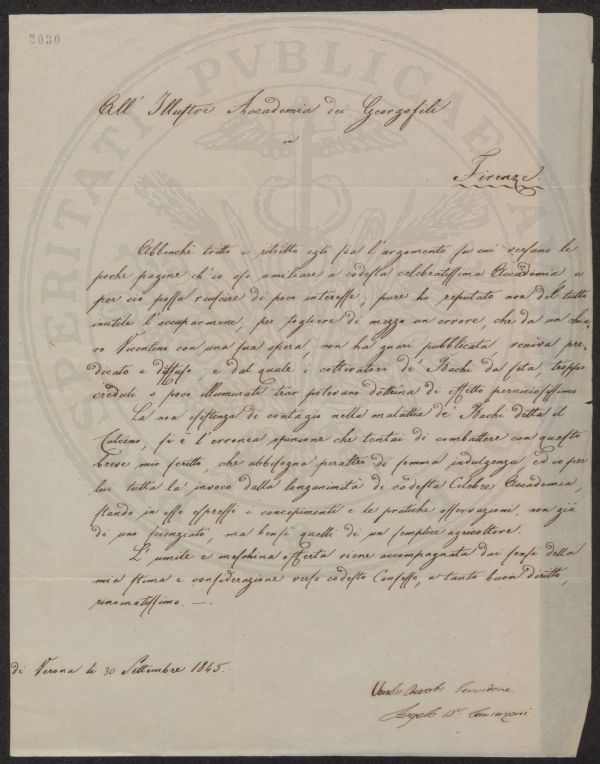 2030
PROSPERITATI PUBLICAE AUGENDAE
All' Illustre Accademia dei Georgofili
in
Firenze.
Abbenchè trito e ritritto egli sia l'argomento su cui versano le
poche pagine ch'io oso umiliare a codesta celebratissima Accademia e
per ciò possa riuscire di poco interesse, pure ho reputato non del tutto
inutile l'occuparmene, per togliere di mezzo un errore, che da un chia,,
ro Vicentino con una sua opera, non ha guari pubblicata, veniva pre,,
dicato e diffuso e dal quale i coltivatori de' Bachi da seta, troppo
creduli o poco illuminati trar potevano dottrina di effetto perniciosissimo
La non esistenza di contagio nella malattia de' Bachi detta il
Calcino, si è l'erronea opinione che tentai di combattere con questo
breve mio scritto, che abbisogna peraltro di somma indulgenza ed io per
lui tutta la invoco dalla longanimità di codesta Celebre Accademia,
stando in esso espressi i concepimenti e le pratiche osservazioni, non già
di uno scienziato, ma bensì quelli di un semplice agricoltore.
L'umile e meschina offerta viene accompagnata dai sensi della
mia stima e considerazione verso codesto Consesso, a tanto buon diritto,
rinomatissimo. —.
di Verona li 30 Settembre 1845.
Servidore
Angelo D.r